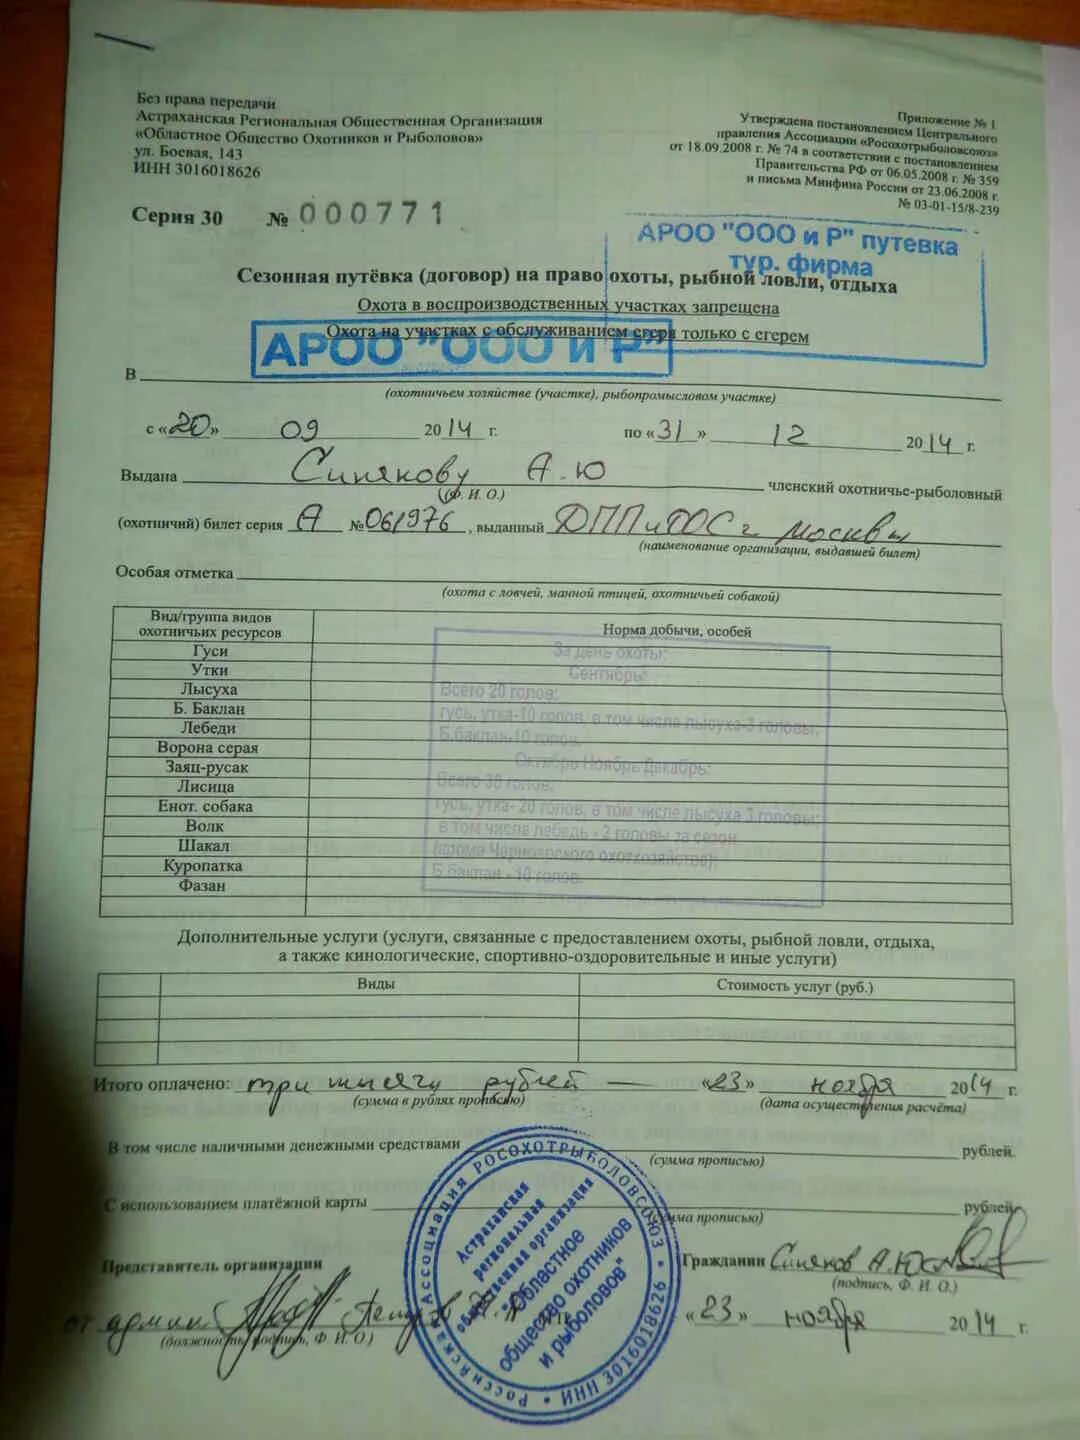 Без права передачи
Астраханская Региональная Общественная Организация
«Областное Общество Охотников и Рыболовов»
ул. Боевая, 143
ИНН 3016018626
Приложение № 1
Утверждена постановлением Центрального
правления Ассоциации «Росохотрыболовсоюз»
от 18.09.2008 г. № 74 в соответствии с постановлением
Правительства РФ от 06.05.2008 г. № 359
и письма Минфина России от 23.06.2008 г.
№ 03-01-15/8-239
Серия 30 № 000771
АРОО "ООО и Р" путевка
тур. фирма
Сезонная путёвка (договор) на право охоты, рыбной ловли, отдыха
Охота в воспроизводственных участках запрещена
Охота на участках с обслуживанием егеря только с егерем
АРОО "ООО и Р"
В
(охотничьем хозяйстве (участке), рыбопромысловом участке)
с «20» 09 2014 г. по «31» 12 2014 г.
Выдана Синякову А.Ю членский охотничье-рыболовный
(Ф. И. О.)
(охотничий) билет серия А № 061976, выданный ДППиООС г Москвы
(наименование организации, выдавшей билет)
Особая отметка
(охота с ловчей, манной птицей, охотничьей собакой)
Вид/группа видов
охотничьих ресурсов
Норма добычи, особей
Гуси
Утки
Лысуха
Б. Баклан
Лебеди
Ворона серая
Заяц-русак
Лисица
Енот. собака
Волк
Шакал
Куропатка
Фазан
За день охоты:
Сентябрь:
Всего 20 голов:
гусь, утка-10 голов, в том числе лысуха-3 головы;
Б.баклан-10 голов.
Октябрь Ноябрь Декабрь:
Всего 30 голов:
гусь, утка- 20 голов, в том числе лысуха 3 головы;
в том числе лебедь - 2 головы за сезон
(кроме Черноярского охотхозяйства);
Б.баклан - 10 голов.
Дополнительные услуги (услуги, связанные с предоставлением охоты, рыбной ловли, отдыха,
а также кинологические, спортивно-оздоровительные и иные услуги)
Виды Стоимость услуг (руб.)
Итого оплачено: три тысячи рублей — «23» ноября 2014 г.
(сумма в рублях прописью) (дата осуществления расчёта)
В том числе наличными денежными средствами рублей.
(сумма прописью)
С использованием платёжной карты рублей.
(сумма прописью)
Представитель организации
Гражданин Синяков А.Ю
(подпись, Ф. И. О.)
от админ
(должность, подпись, Ф. И. О.)
«23» ноября 2014 г.
Российская Ассоциация РОСОХОТРЫБОЛОВСОЮЗ • ИНН 3016018626 •
Астраханская
региональная
общественная организация
"Областное
общество охотников
и рыболовов"